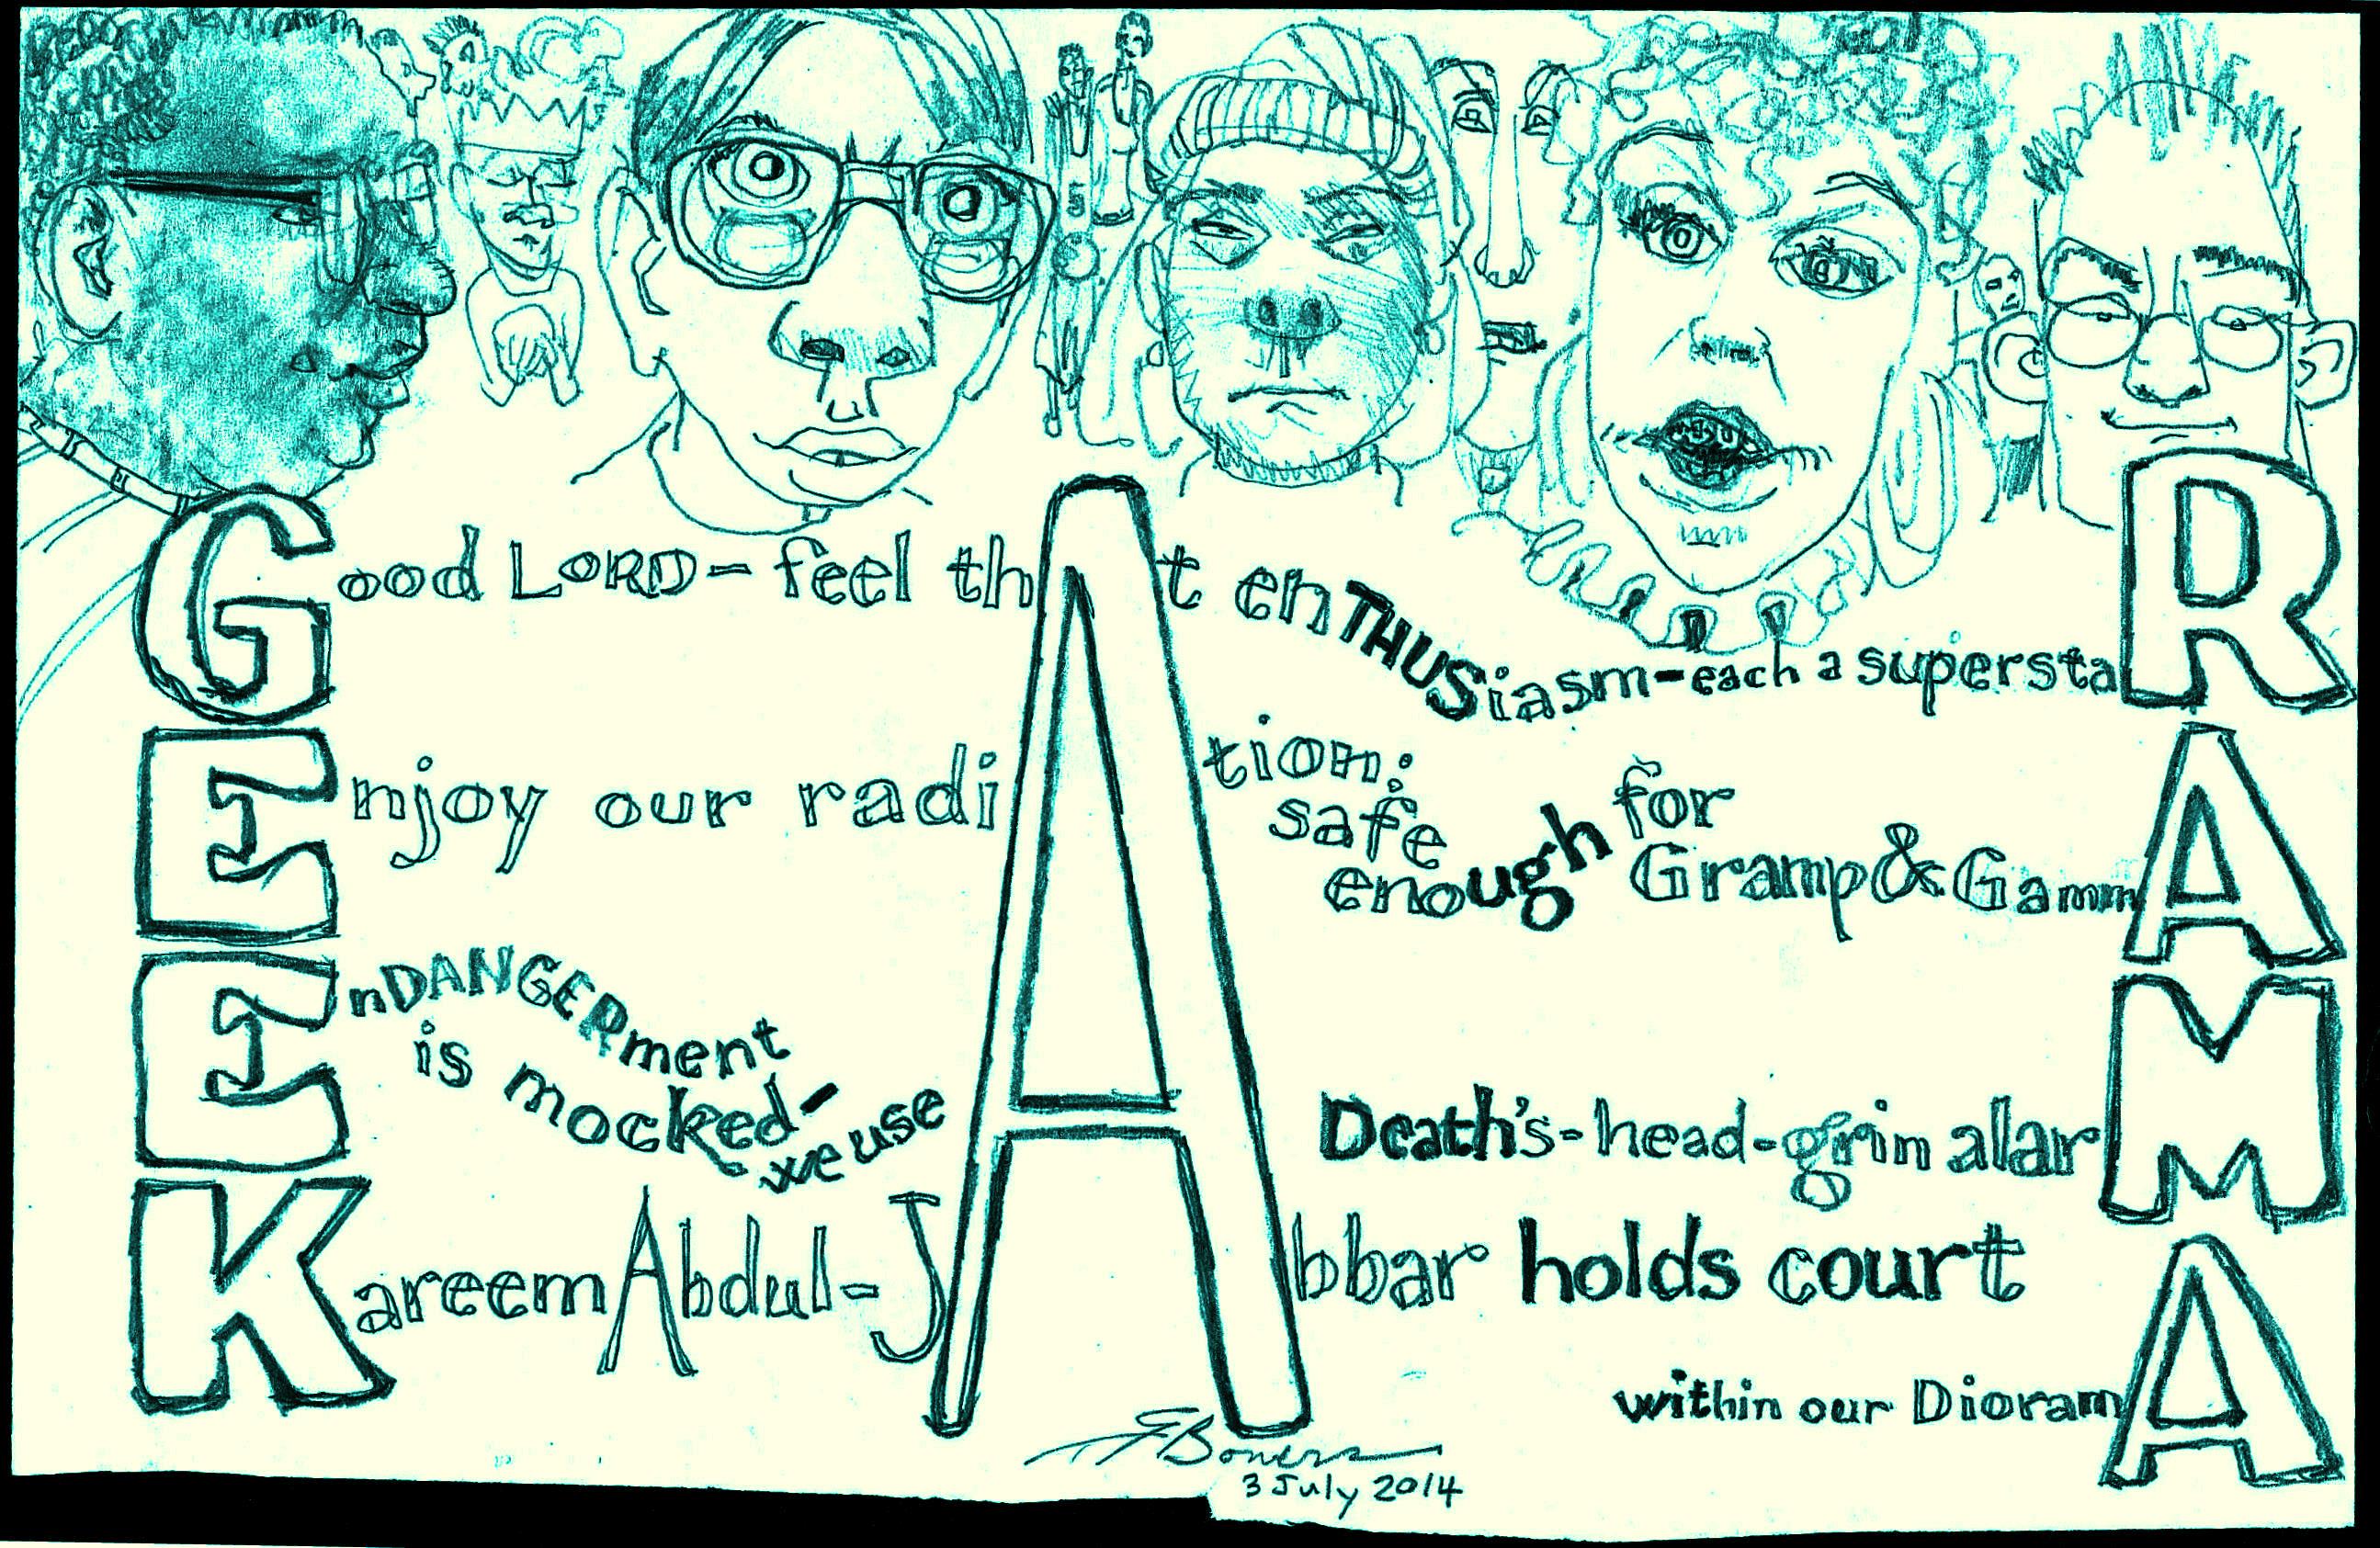 Good LORD - feel thAt enTHUSiasm - each a superstaR
Enjoy our radiAtion: safe enough for Gramp & GammA
EnDANGERment is mocked - we use A Death's-head-grin alarM
Kareem Abdul-JAbbar holds court
within our DioramA
Bowers
3 July 2014
5